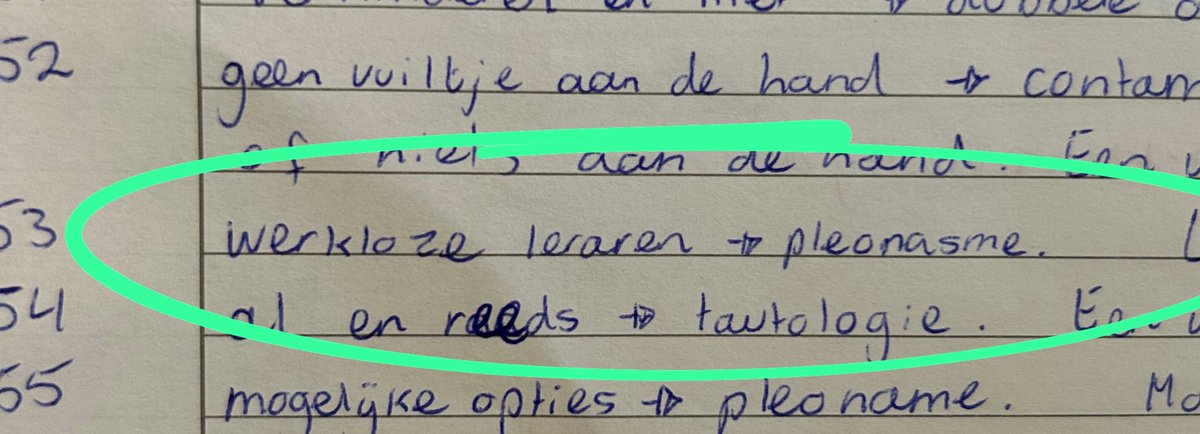 en
52 geen vuiltje aan de hand → contam
of niets aan de hand. Een
53 werkloze leraren → pleonasme. L
54 al en reeds → tautologie. Een
55 mogelijke opties → pleoname. Mo